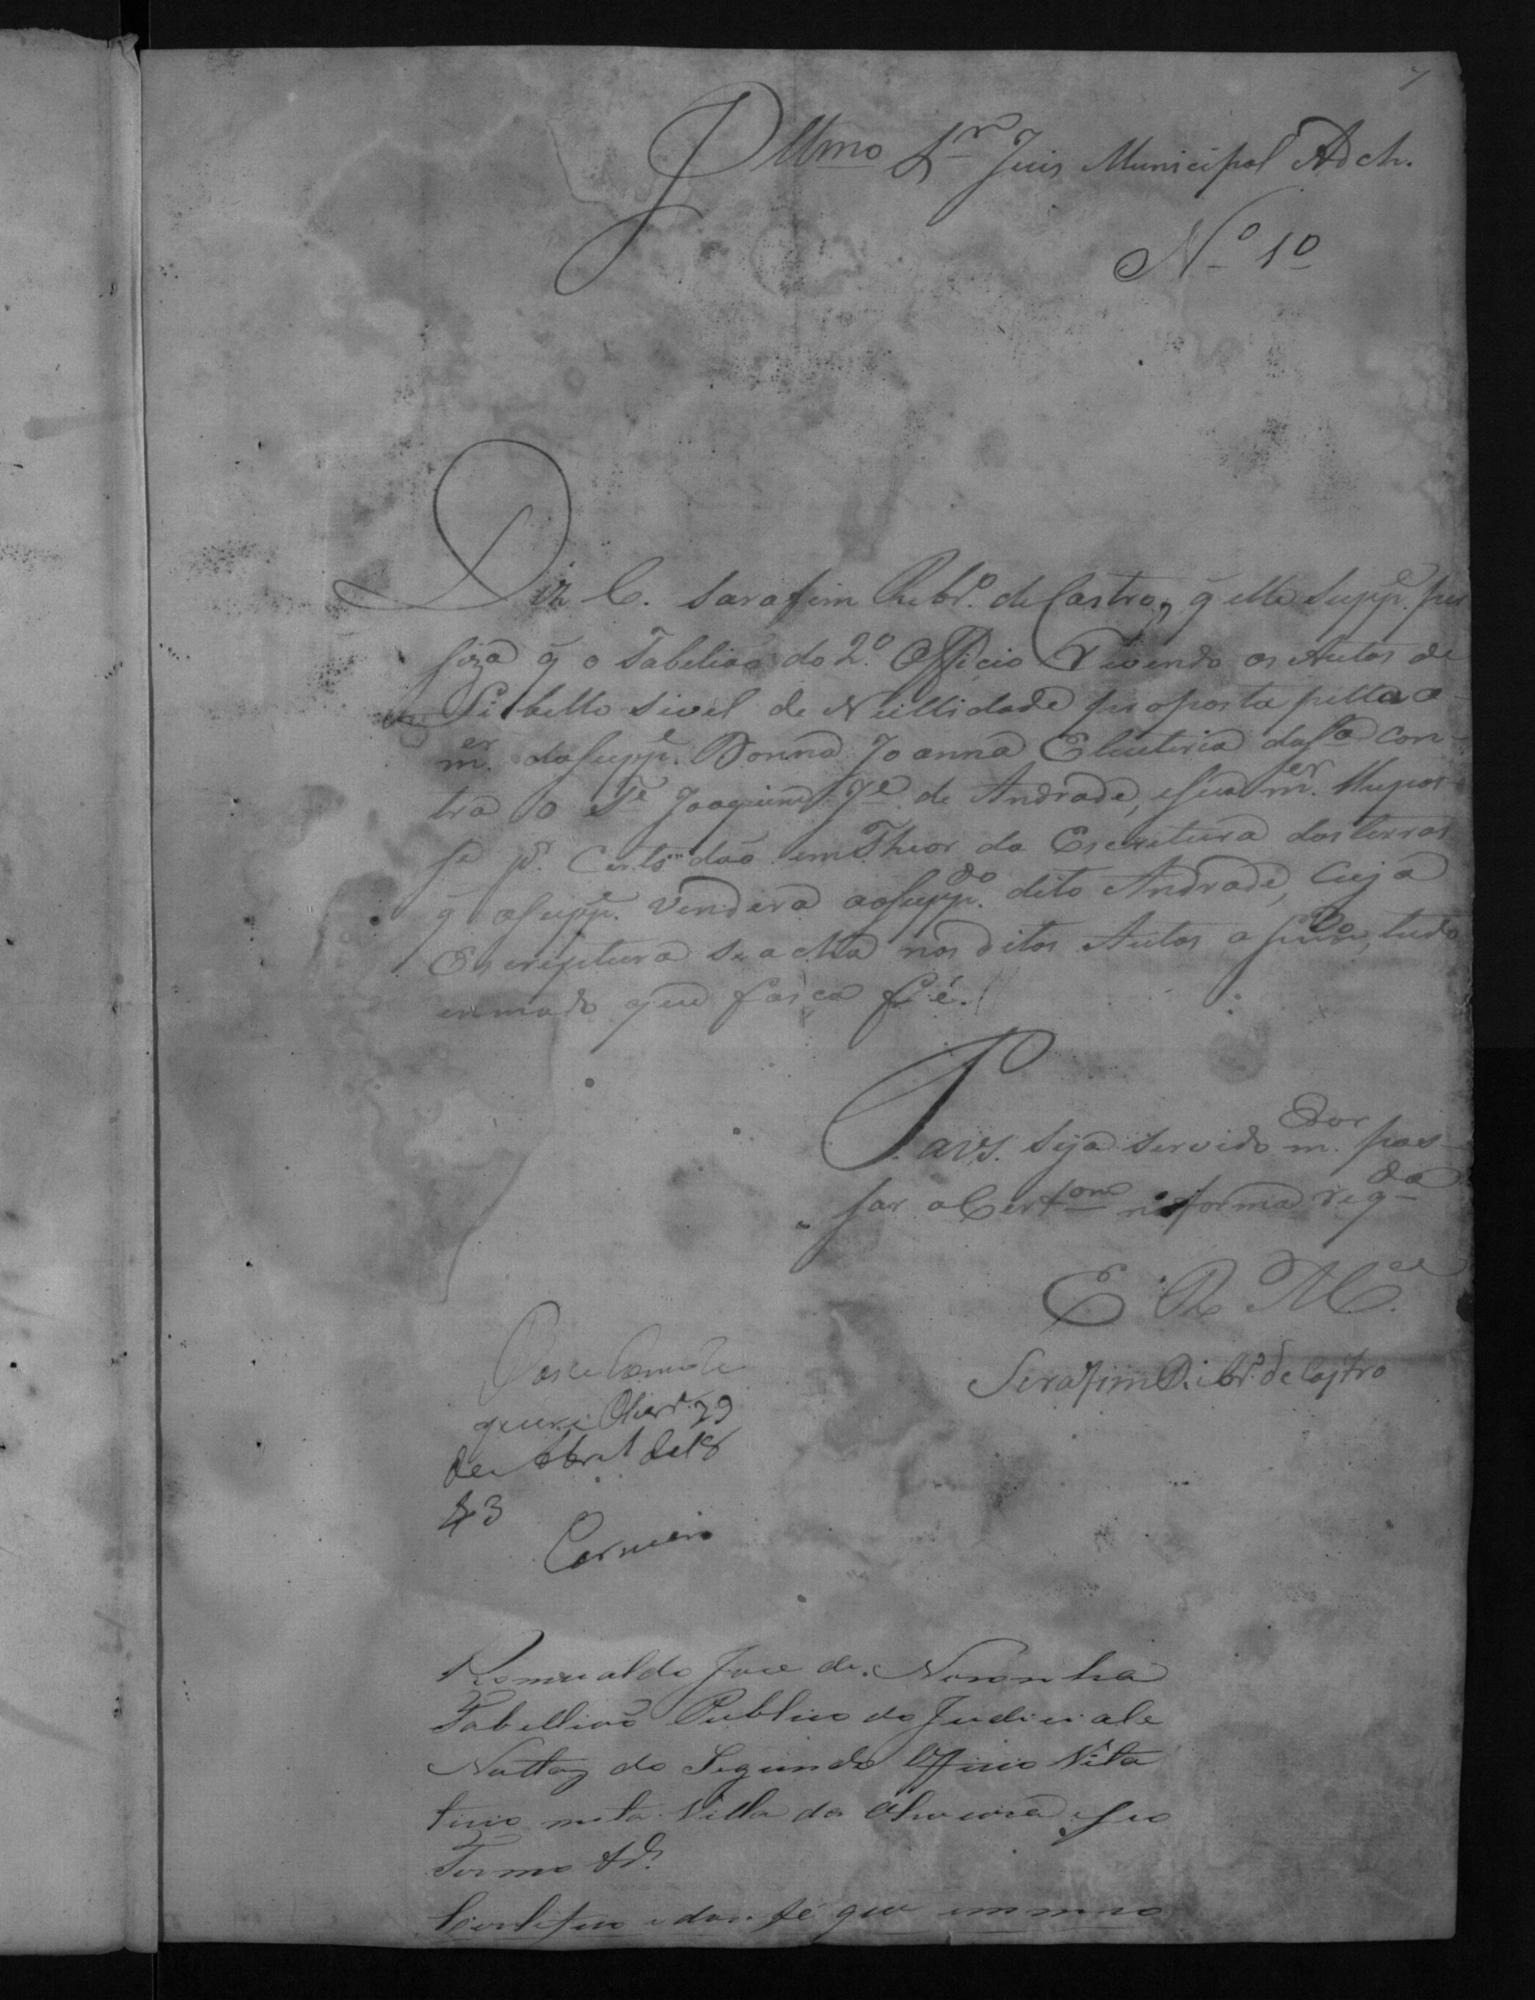 7
Illmo Snr Juis Municipal
Nº 10
Diz C. Sarafim Ribr.º de Castro, q̃ elle Supp.e pre
siza q̃ o Tabeliaõ do 2.º Officio Revendo os Autos de
Libello sivel de Nullidade proposta pella
m.er do Supp.e Donna Joanna Eleuteria da Sª con-
tra o Joaquim J.e de Andrade, e sua m.er
p.r Certidaõ em Theor da Escritura das terras
q̃ o Supp.e vendera ao Supp.do dito Andrade, Cuja
Escriptura se acha nos ditos Autos tudo
em modo que fasca fé.
P. a V S. seja servido m.dor pas-
sar a Certom na forma reqda
E R M.ce
Serafim Ribr.º de Castro
Passe do que
29
de Abril de 18
43
Carneiro
Romualdo Jose de Noronha
Tabelliaõ Publico do Judicial e
Nottas do Segundo Officio Vita
licio nesta Villa da Oliveira e seo
Termo &.
Certifico e dou fé que em meo